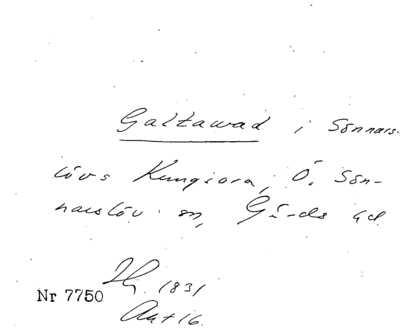 Galtawad i Sönnars-
lövs Kungsora, Ö. Sön-
narslöv sn, Gärds hd.
1831
Nr 7750
Akt 16.